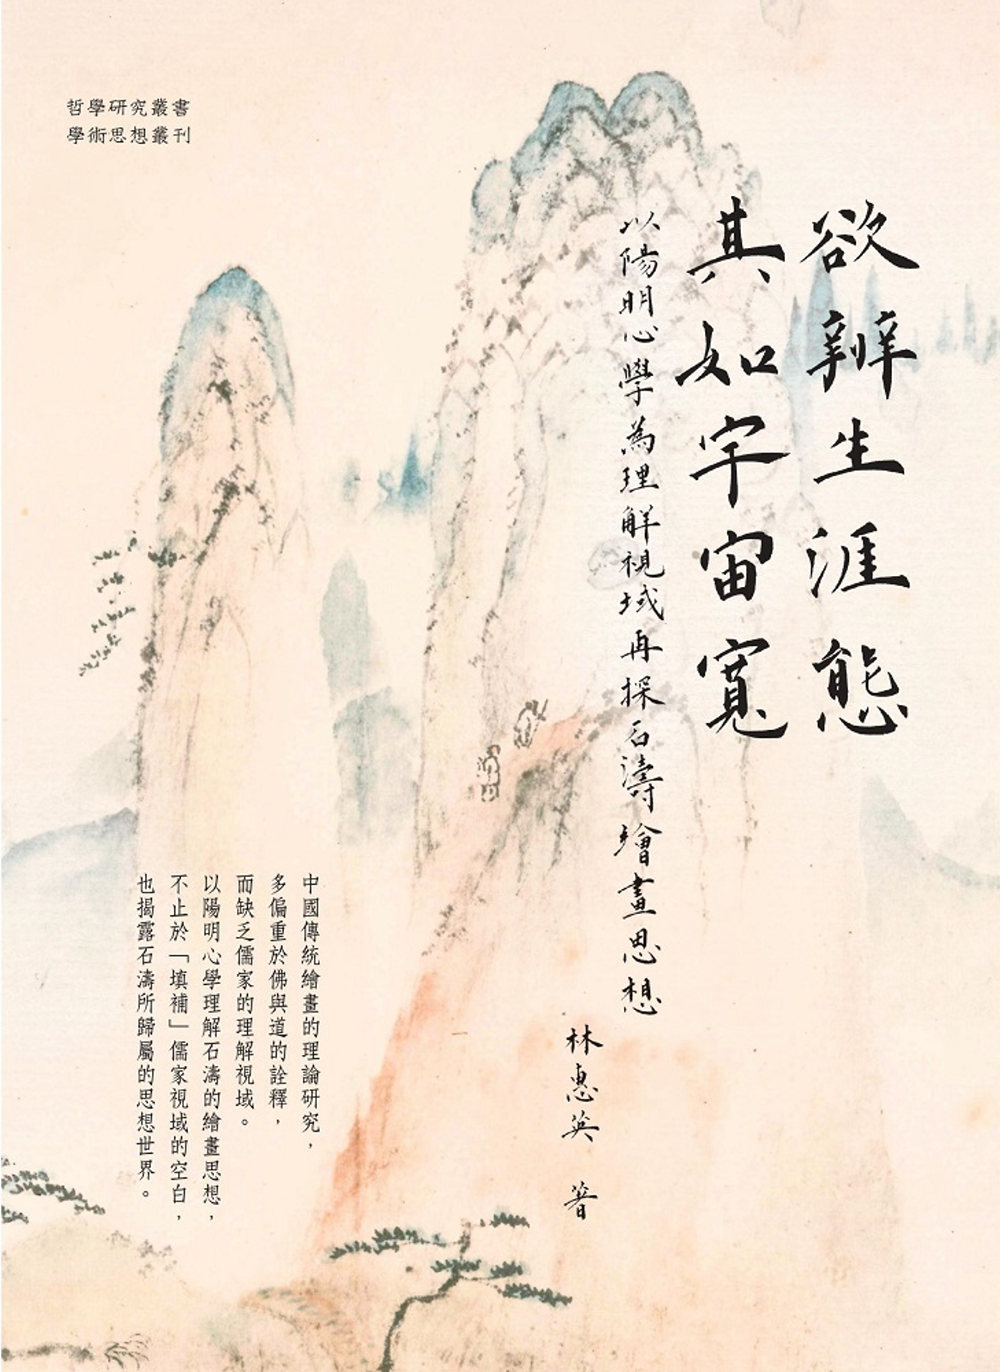 哲學研究叢書
學術思想叢刊
欲辨生涯態
其如宇宙寬
以陽明心學為理解視域再探石濤繪畫思想
林惠英 著
中國傳統繪畫的理論研究，
多偏重於佛與道的詮釋，
而缺乏儒家的理解視域。
以陽明心學理解石濤的繪畫思想，
不止於「填補」儒家視域的空白，
也揭露石濤所歸屬的思想世界。